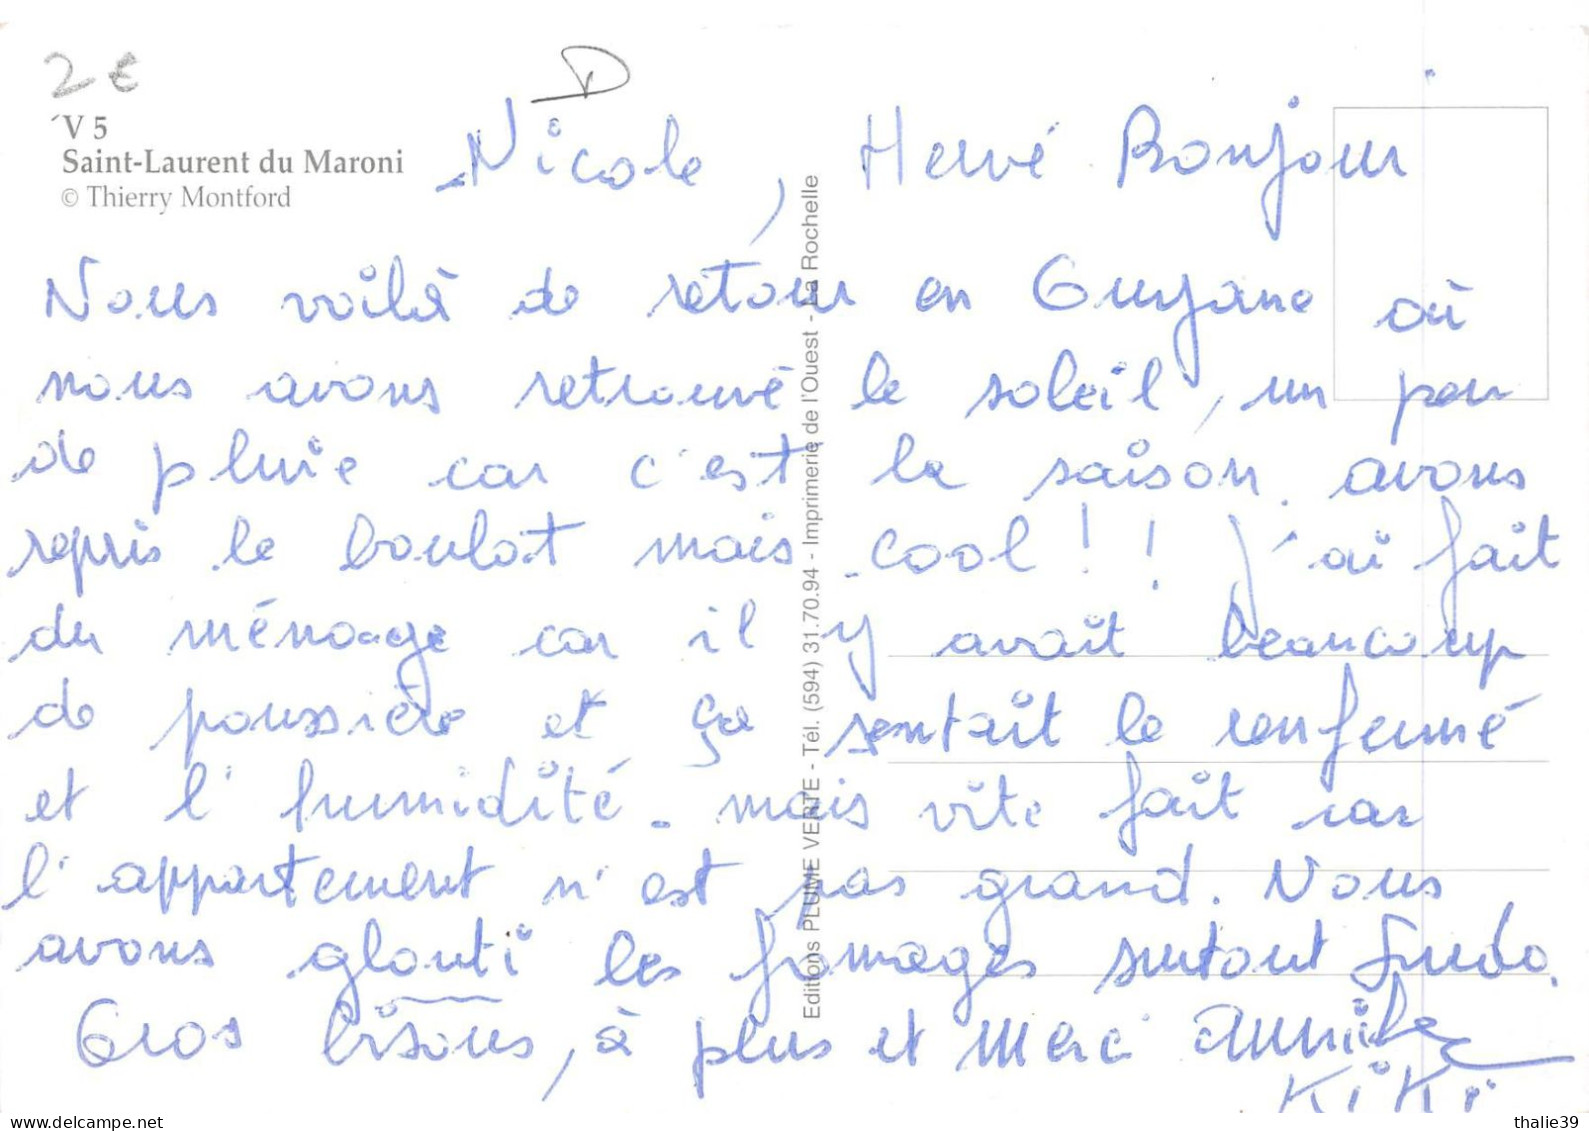 2 €
V 5
Saint-Laurent du Maroni
© Thierry Montford
D
Nicole, Hervé Bonjour
Nous voilà de retour en Guyane où
nous avons retrouvé le soleil, un peu
de pluie car c'est la saison. avons
repris le boulot mais cool!! J'ai fait
du ménage car il y avait beaucoup
de poussière et ça sentait le renfermé
et l'humidité - mais vite fait car
l'appartement n'est pas grand. Nous
avons glouti les fromages surtout Ludo.
Gros bisous, à plus et merci Annick
Kiki
Editions PLUME VERTE - Tél. (594) 31.70.94 - Imprimerie de l'Ouest - La Rochelle
delcampe.net
thalie39